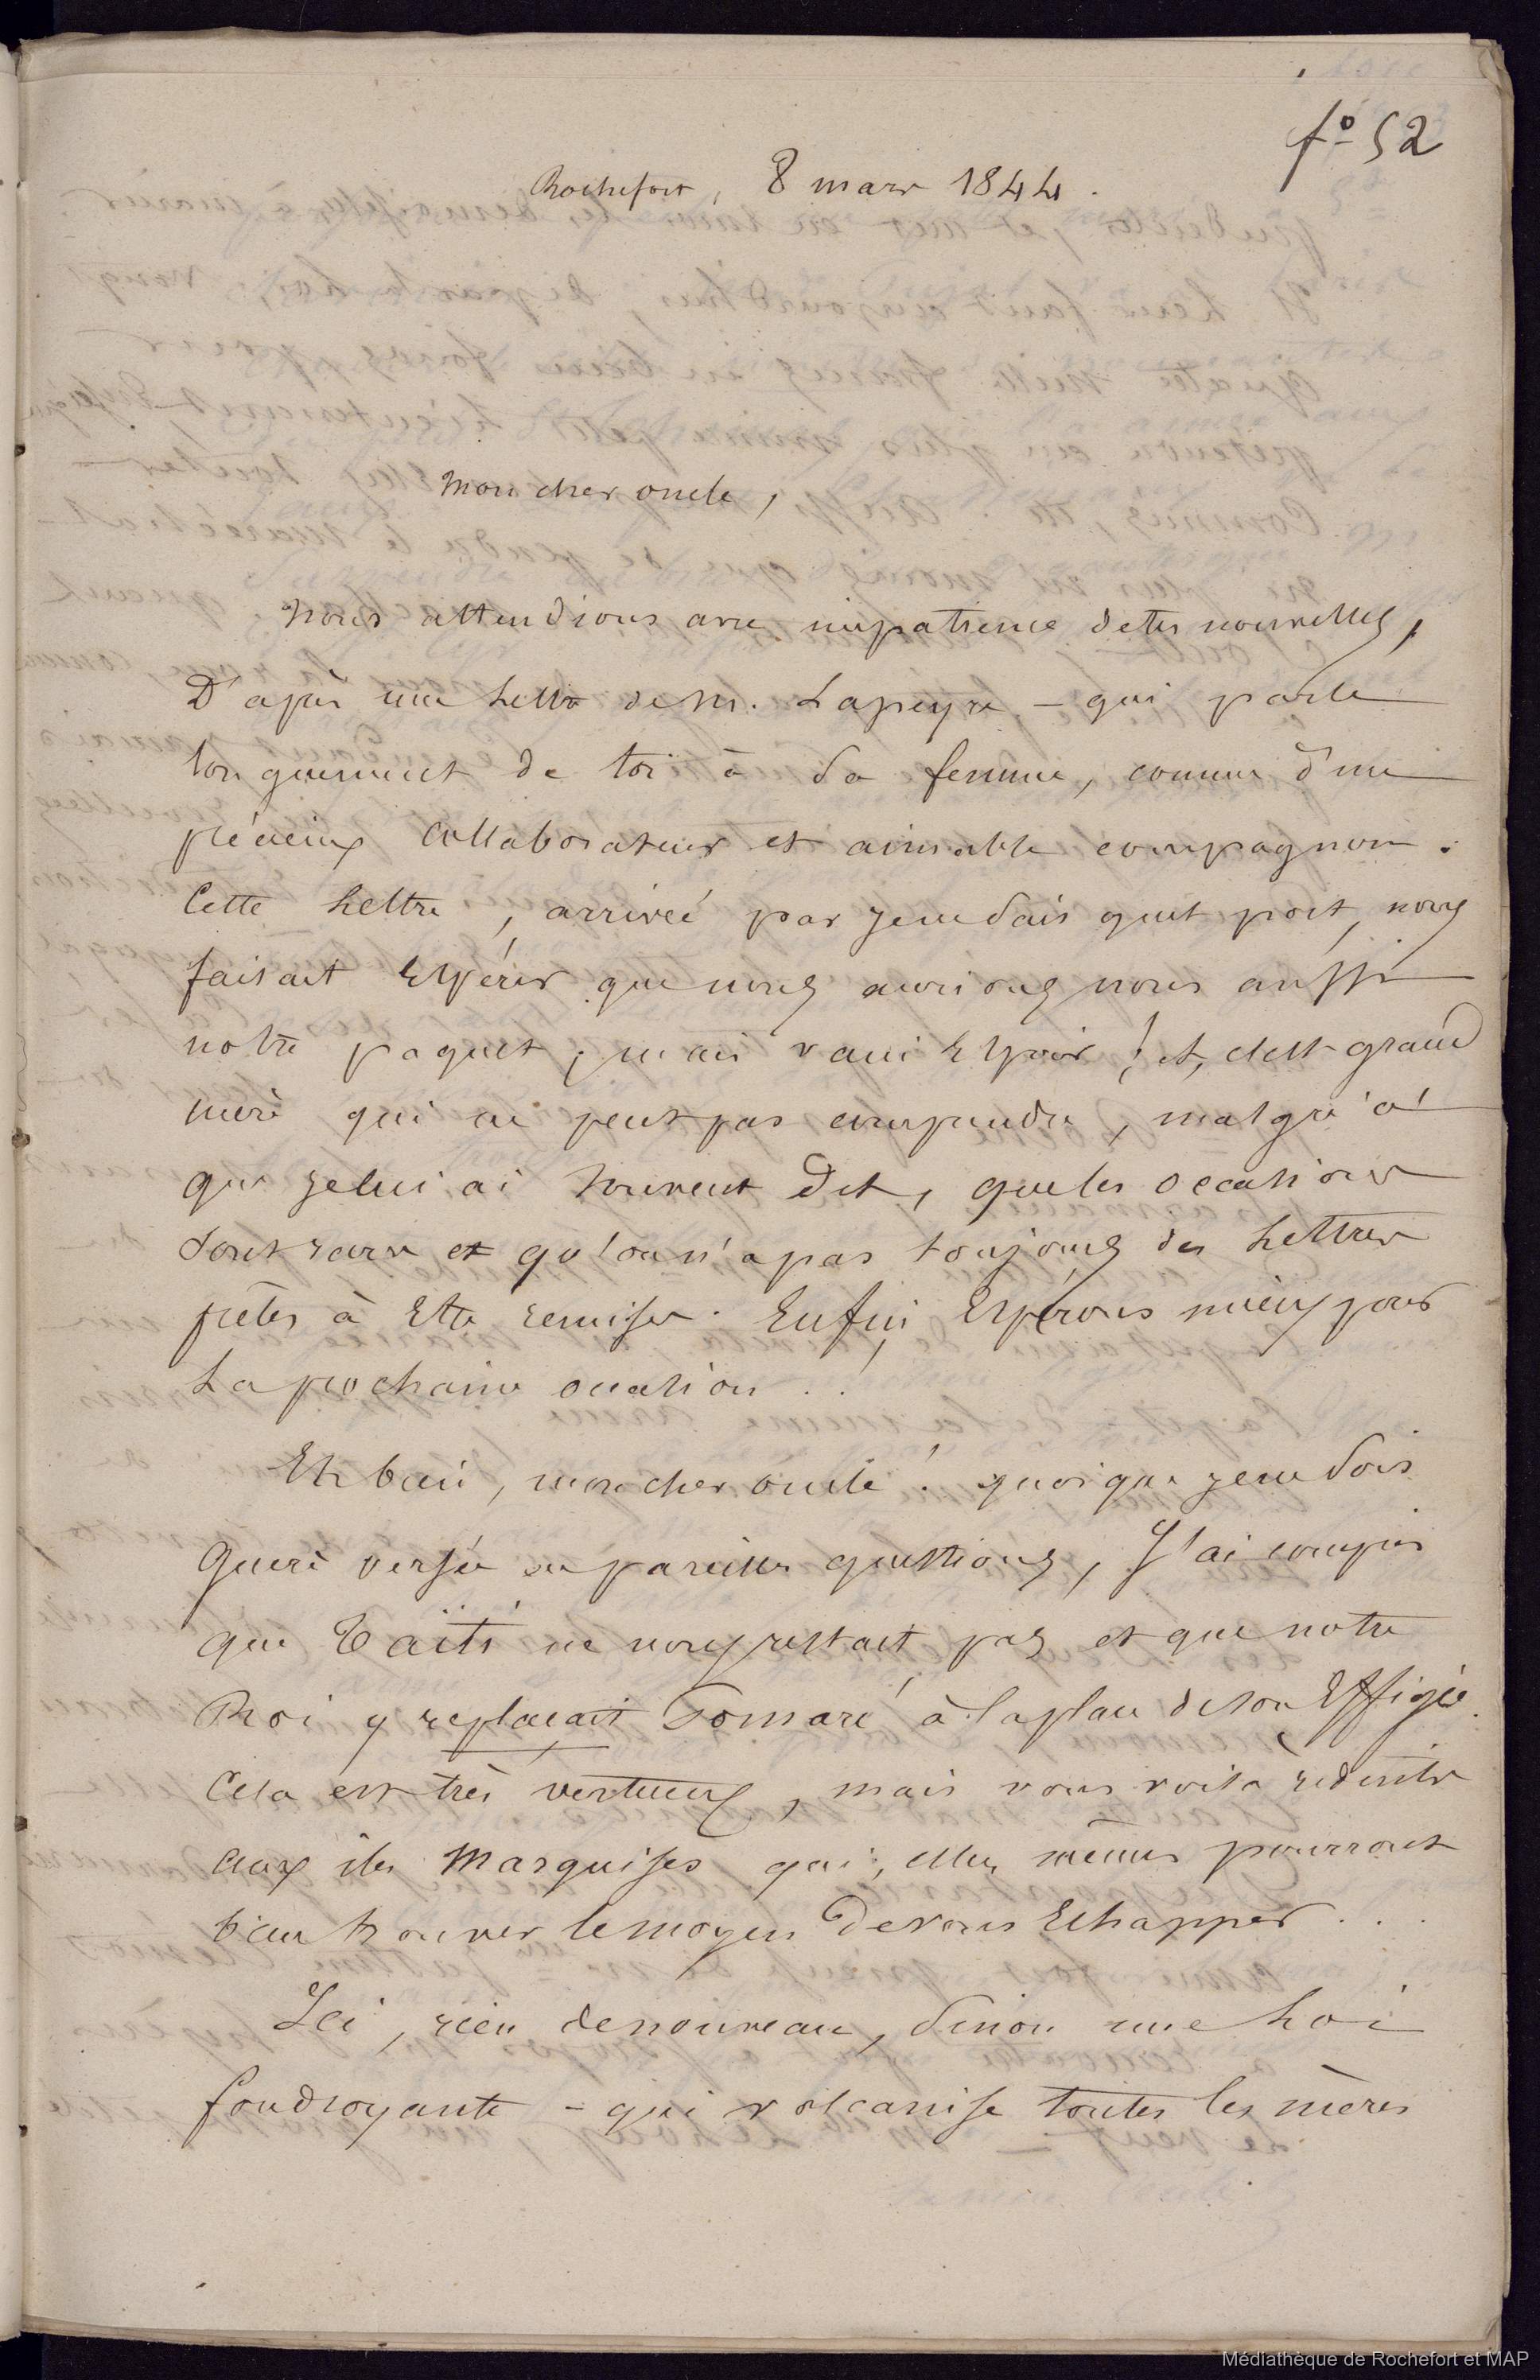 f° 52
Rochefort, 8 mars 1844.
Mon cher oncle,
Nous attendions avec impatience de tes nouvelles,
D'après une Lettre de M. Lapeyre – qui parle
longuement de toi à sa femme, comme d'un
précieux collaborateur et aimable compagnon.
Cette Lettre, arrivée par je ne sais quel port, nous
faisait Espérer que nous aurions nous aussi
notre paquet ; mais vain Espoir ! et, c'est grand
mère qui ne peut pas comprendre, malgré ce
que je lui ai souvent dit, que les occasions
sont rares et qu'on n'a pas toujours des Lettres
prêtes à Etre remises. Enfin, Espérons mieux pour
La prochaine occasion . .
Eh bien, mon cher oncle ! quoique je ne sois
guère versée en pareilles questions, J'ai compris
que Taïti ne nous restait pas et que notre
Roi y replaçait Pomaré à la place de son Effigie.
Cela est très vertueux, mais vous voilà réduits
aux îles Marquises qui, elles mêmes pourront
bien trouver le moyen de vous Echapper . . .
Ici, rien de nouveau, sinon une Loi
foudroyante – qui volcanise toutes les mères
Médiathèque de Rochefort et MAP